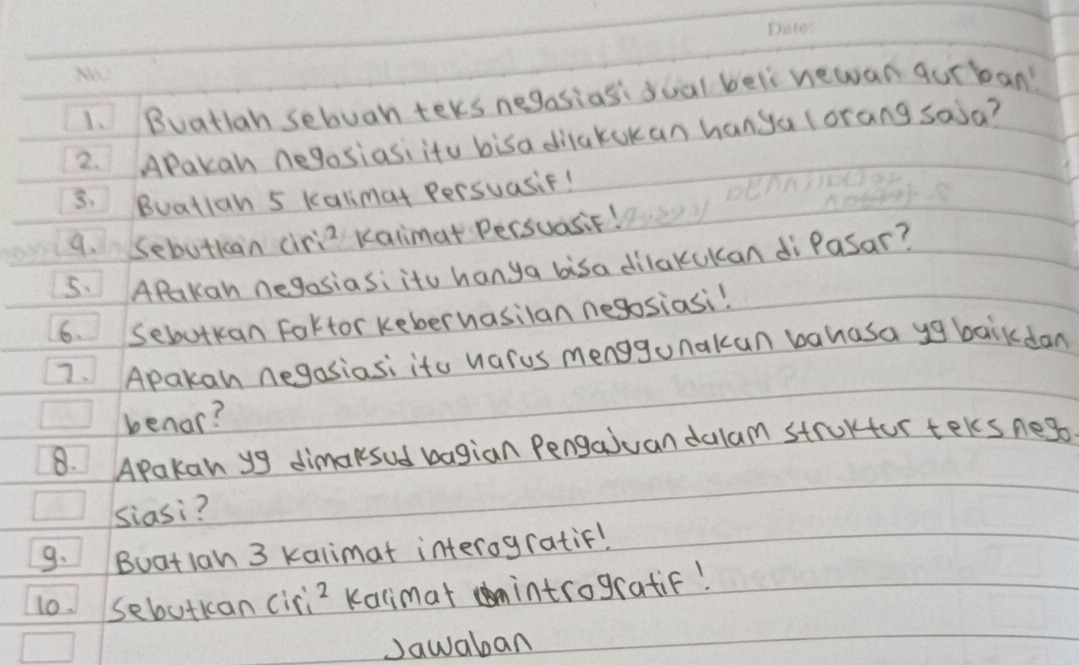 Date:
No.
1. Buatlah sebuah teks negosiasi jual beli hewan qurban!
2. Apakah negosiasi itu bisa dilakukan hanya 1 orang saja?
3. Buatlah 5 kalimat Persuasif!
4. Sebutkan ciri² kalimat Persuasif!
5. Apakah negosiasi itu hanya bisa dilakukan di Pasar?
6. Sebutkan Faktor keberhasilan negosiasi!
7. Apakah negosiasi itu harus menggunakan bahasa yg baik dan
benar?
8. Apakah yg dimaksud bagian Pengajuan dalam struktur teks nego-
siasi?
9. Buatlah 3 kalimat interogratif!
10. Sebutkan ciri² kalimat introgratif!
Jawaban